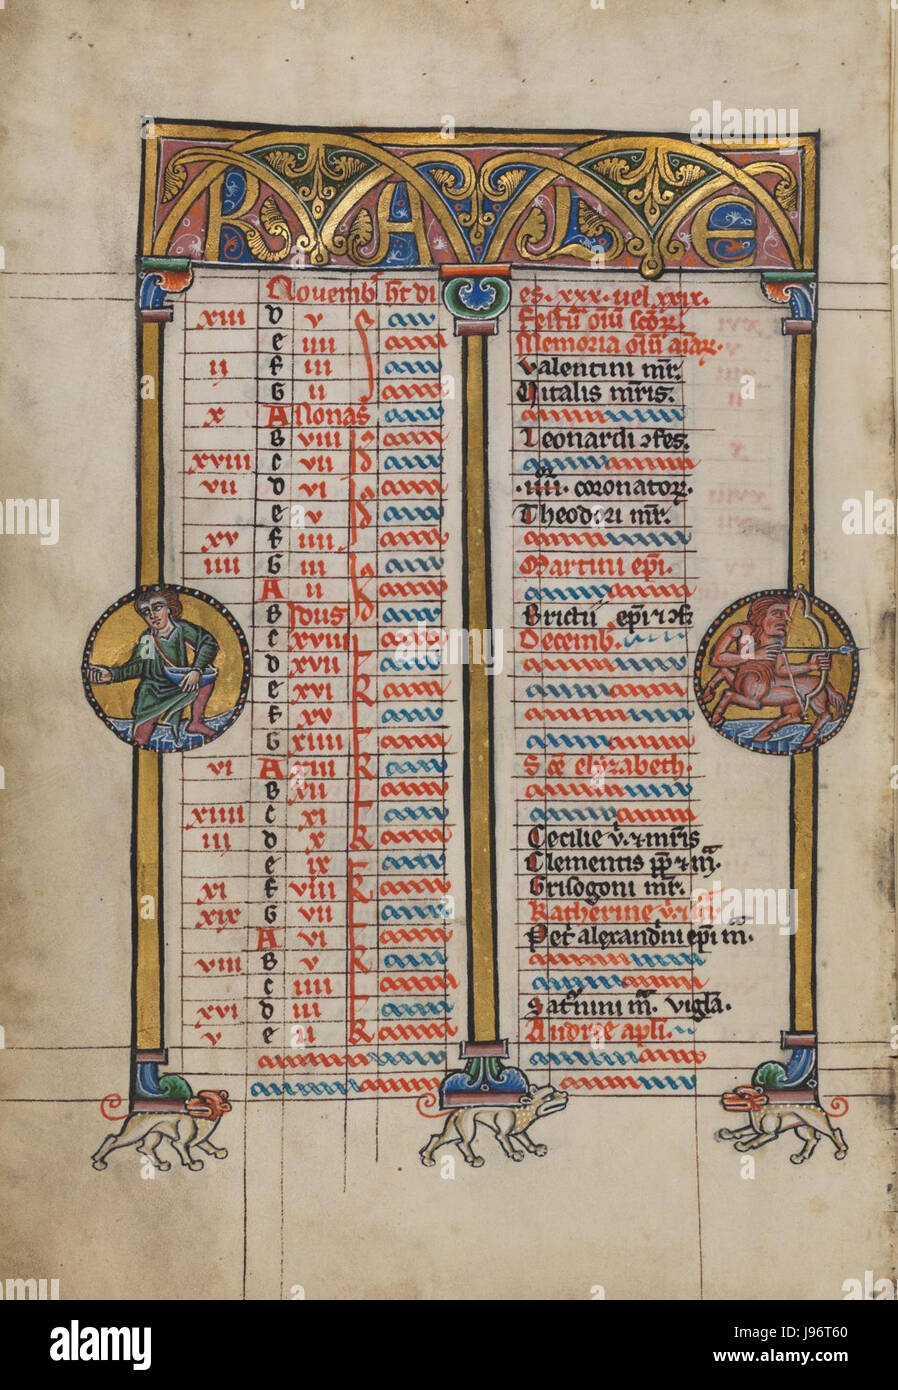 KALE
Novemb ht di es. xxx. vel xxix.
xiii D v Festū oīū scōꝝ.
e iiii Memoria oīū aīaꝝ.
ii f iii Valentini mr̄.
G ii Vitalis mr̄is.
x A Nonas
B viii Leonardi ꝯfes.
xviii c vii
vii D vi .iiii. coronatoꝝ.
e v Theodori mr̄.
xv f iiii
iiii G iii Martini ep̄i.
A ii
B Idus Brictii ep̄i ⁊ ꝯf.
c xviii Decemb.
D xvii
e xvi
f xv
G xiiii
vi A xiii S cē elyzabeth.
B xii
xiiii c xi
iii D x Cecilie v̄. ⁊ mr̄is
e ix Clementis pp̄ ⁊ m̄.
xi f viii Grisogoni mr̄.
xix G vii Katherine v̄.
A vi Pet̄ alexandrini ep̄i m̄.
viii B v
c iiii
xvi D iii Saturnini m̄. vigl̄a.
v e ii Andree apl̄i.
alamy
Image ID: J96T60
www.alamy.com